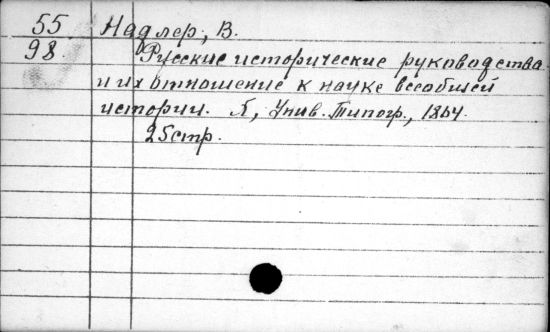 55 Надлер, В.
98 Русские исторические руководства
и их отношение к науке всеобщей
истории. Х, Унив. Типогр., 1864.
25 стр.